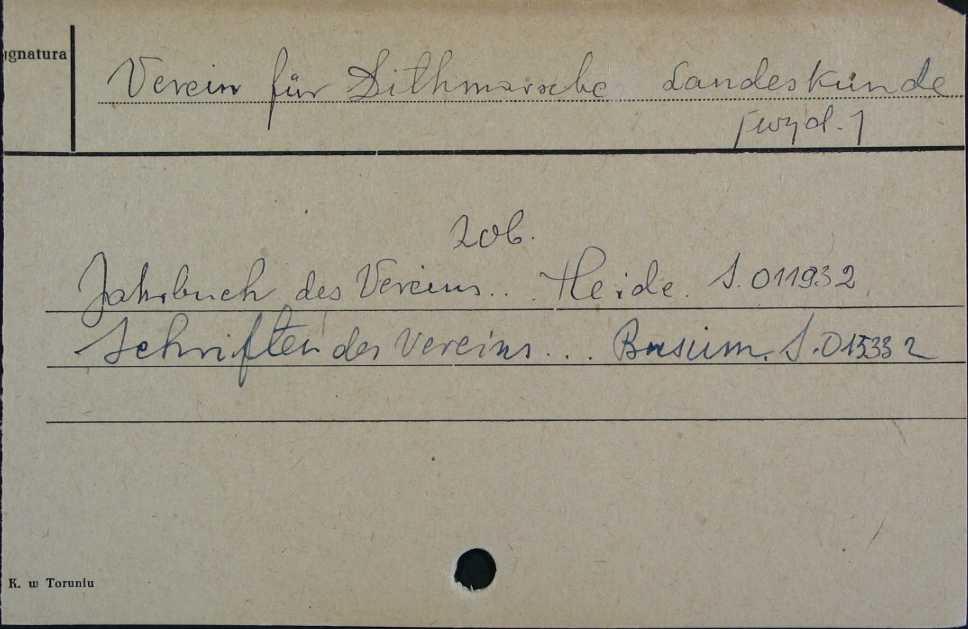 ignatura
Verein für Dithmarsche Landeskunde
[wyd.]
zob.
Jahrbuch des Vereins... Heide. S.011932
Schriften des Vereins... Busum. S.015332
K. w Toruniu